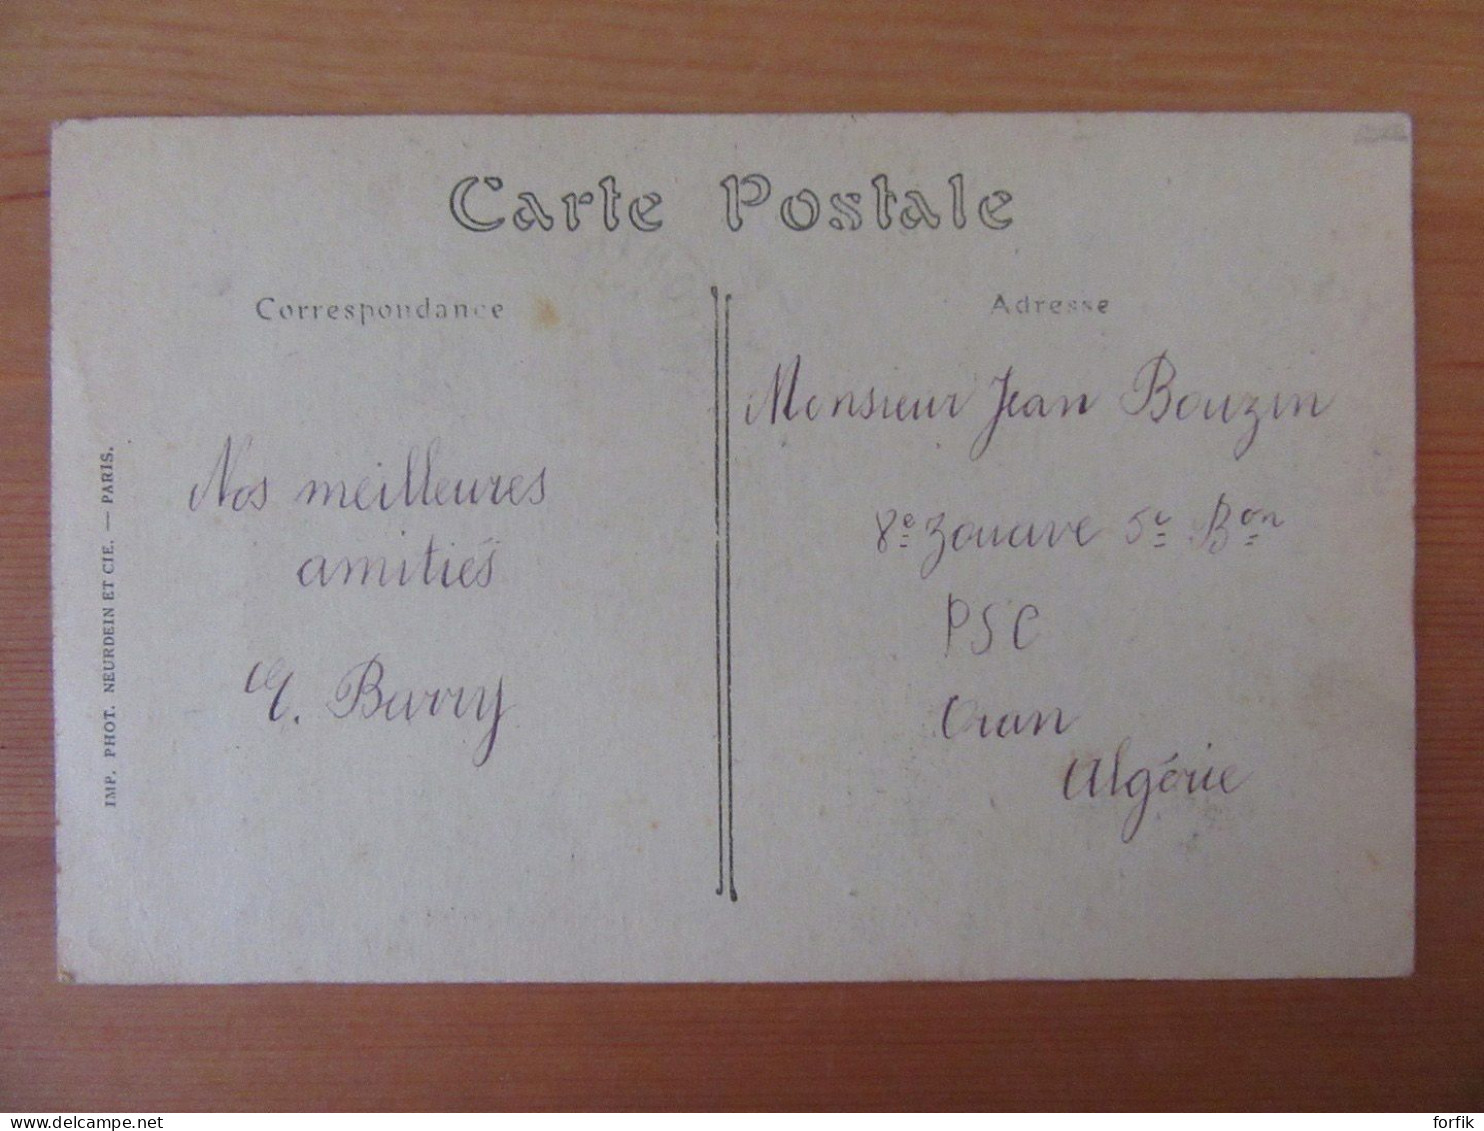 Carte Postale
Correspondance
Nos meilleures
amitiés
E. Barry
IMP. PHOT. NEURDEIN ET CIE. — PARIS.
Adresse
Monsieur Jean Bouzin
8e Zouave 5e Bon
PSC
Oran
Algérie
forfik